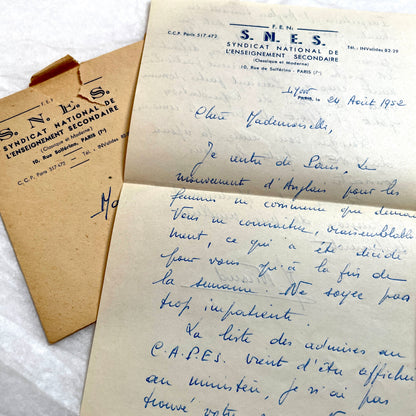 F. E. N.
S. N. E. S.
SYNDICAT NATIONAL DE
L'ENSEIGNEMENT SECONDAIRE
(Classique et Moderne)
10, Rue Solférino, PARIS (7e)
C.C.P. Paris 517.472 - Tél. : INValides 82
Ma
F. E. N.
C.C.P. Paris 517.472
S. N. E. S.
Tél. : INValides 82-29
SYNDICAT NATIONAL DE
L'ENSEIGNEMENT SECONDAIRE
(Classique et Moderne)
10, Rue de Solférino, - PARIS (7e)
Lyon
PARIS, le 24 Août 1952
Chère Mademoiselle,
Je rentre de Paris. Le
mouvement d'Anglais pour les
femmes ne commence que demain
Vous ne connaîtrez, vraisemblable-
ment, ce qui a été décidé
pour vous qu'à la fin de
la semaine. Ne soyez pas
trop impatiente.
La liste des admises au
C.A.P.E.S. vient d'être affichée
au ministère, je n'ai pas
trouvé votre